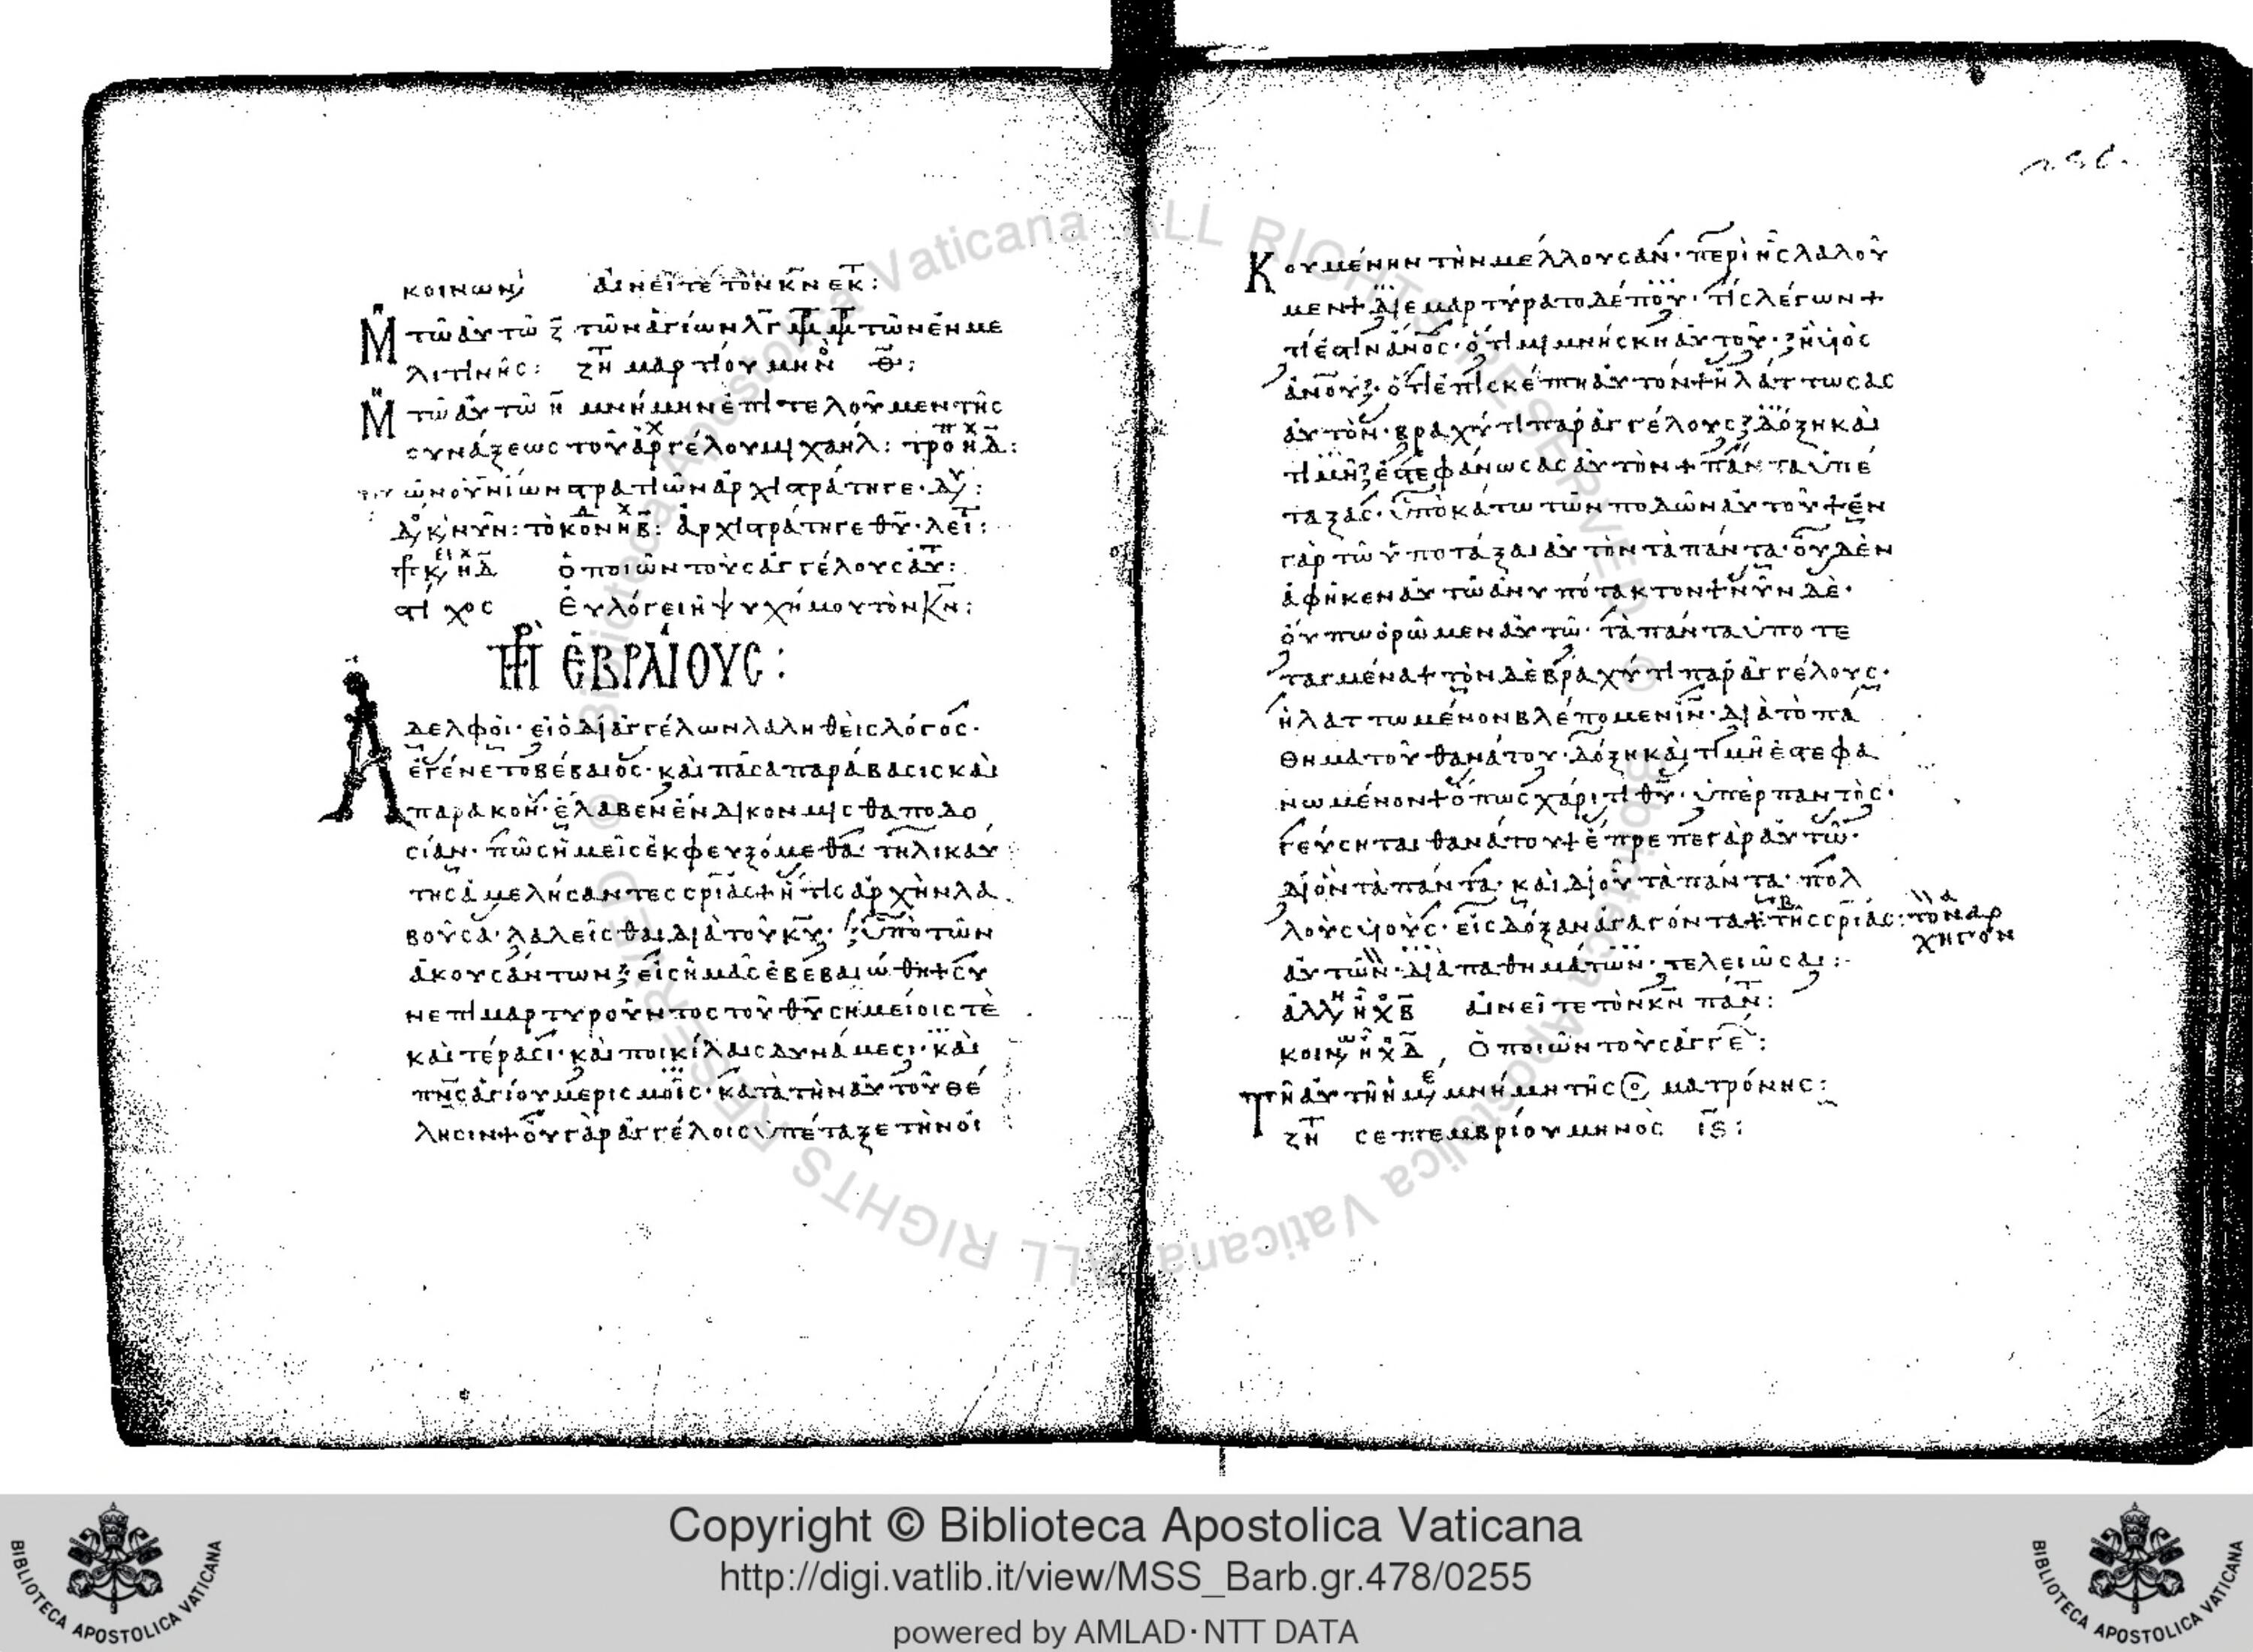 κοινων αἰνεῖτε τὸν κν ἐκ τ:
Μ τῶ αὐτῶ ζ τῶν ἁγίων λγ μ μ τῶν ἐν με
λιτινῆς: ζτ μαρτίου μην θ:
Μ τῶ αὐτῶ η μνήμην ἐπιτελοῦμεν τῆς
συνάξεως τοῦ ἀρχγέλου μιχαήλ: τρο ηχ δ:
τῶν οὐνίων στρατιῶν ἀρχιστράτηγε·
κ νῦν: τὸ κον ηχ β: ἀρχιστράτηγε θυ· λει τ:
πρκ ηχ δ ὁ ποιῶν τοὺς ἀγγέλους αὐτ:
στίχος Εὐλόγει ἡ ψυχή μου τὸν κν:
πρ ἑβραίους:
Ἀδελφοὶ· εἰ ὁ δι' ἀγγέλων λαληθεὶς λόγος·
ἐγένετο βέβαιος· καὶ πᾶσα παράβασις καὶ
παρακοὴ· ἔλαβεν ἔνδικον μισθαποδο
σίαν· πῶς ἡμεῖς ἐκφευξόμεθα· τηλικαύ
της ἀμελήσαντες σριας + ἥτις ἀρχὴν λα
βοῦσα· λαλεῖσθαι διὰ τοῦ κυ· ὑπὸ τῶν
ἀκουσάντων εἰς ἡμᾶς ἐβεβαιώθη + συ
νεπιμαρτυροῦντος τοῦ θυ σημείοις τὲ
καὶ τέρασι· καὶ ποικίλαις δυνάμεσι· καὶ
πνς ἁγίου μερισμοῖς· κατὰ τὴν αὐτοῦ θέ
λησιν + οὐ γὰρ ἀγγέλοις ὑπέταξε τὴν οἰ
κουμένην τὴν μέλλουσαν· περὶ ἧς λαλοῦ
μεν + διεμαρτύρατο δέ που· τίς λέγων +
τί ἐστιν ἄνος· ὅτι μιμνήσκη αὐτοῦ· ἢ υἱὸς
ἀνου· ὅτι ἐπισκέπτη αὐτόν + ἠλάττωσας
αὐτὸν· βραχύ τι παρ' ἀγγέλους· δόξη καὶ
τιμῆ ἐστεφάνωσας αὐτὸν + πάντα ὑπέ
ταξας· ὑποκάτω τῶν ποδῶν αὐτοῦ + ἐν
γὰρ τῶ ὑποτάξαι αὐτὸν τὰ πάντα· οὐδὲν
ἀφῆκεν αὐτῶ ἀνυπότακτον + νῦν δὲ·
οὔπω ὁρῶμεν αὐτῶ· τὰ πάντα ὑποτε
ταγμένα + τὸν δὲ βραχύ τι παρ' ἀγγέλους·
ἠλαττωμένον βλέπομεν ιν· διὰ τὸ πά
θημα τοῦ θανάτου· δόξη καὶ τιμῆ ἐστεφα
νωμένον + ὅπως χάριτι θυ· ὑπὲρ παντὸς·
γεύσηται θανάτου + ἔπρεπε γὰρ αὐτῶ·
δι' ὃν τὰ πάντα· καὶ δι' οὗ τὰ πάντα· πολ
λοὺς υἱοὺς· εἰς δόξαν ἀγαγόντα + τῆς σριας: τὸν ἀρ
χηγόν
αὐτῶν· διὰ παθημάτων· τελειῶσαι:
ἀλλη ηχ β αἰνεῖτε τὸν κν πάντ:
κοιν ηχ δ, Ὁ ποιῶν τοὺς ἀγγέ:
Τῆ αὐτῆ ἡμε μνήμη τῆς ὁ ματρόνης:
ζητ σεπτεμβρίου μηνὸς ις: